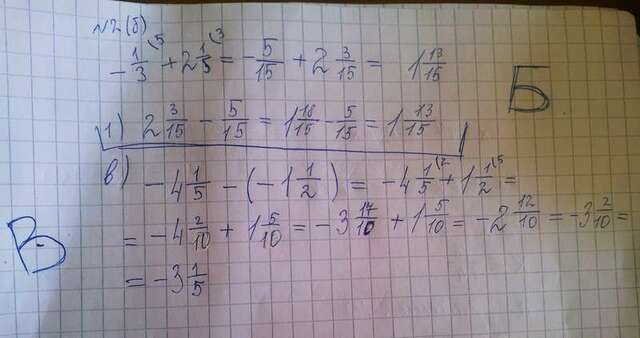 №2(б)
-1/3(5 + 2 1/5(3 = -5/15 + 2 3/15 = 1 13/15
Б
1) 2 3/15 - 5/15 = 1 18/15 - 5/15 = 1 13/15
в) -4 1/5 - (-1 1/2) = -4 1/5(2 + 1 1/2(5 =
В
= -4 2/10 + 1 5/10 = -3 14/10 + 1 5/10 = -2 12/10 = -3 2/10 =
= -3 1/5